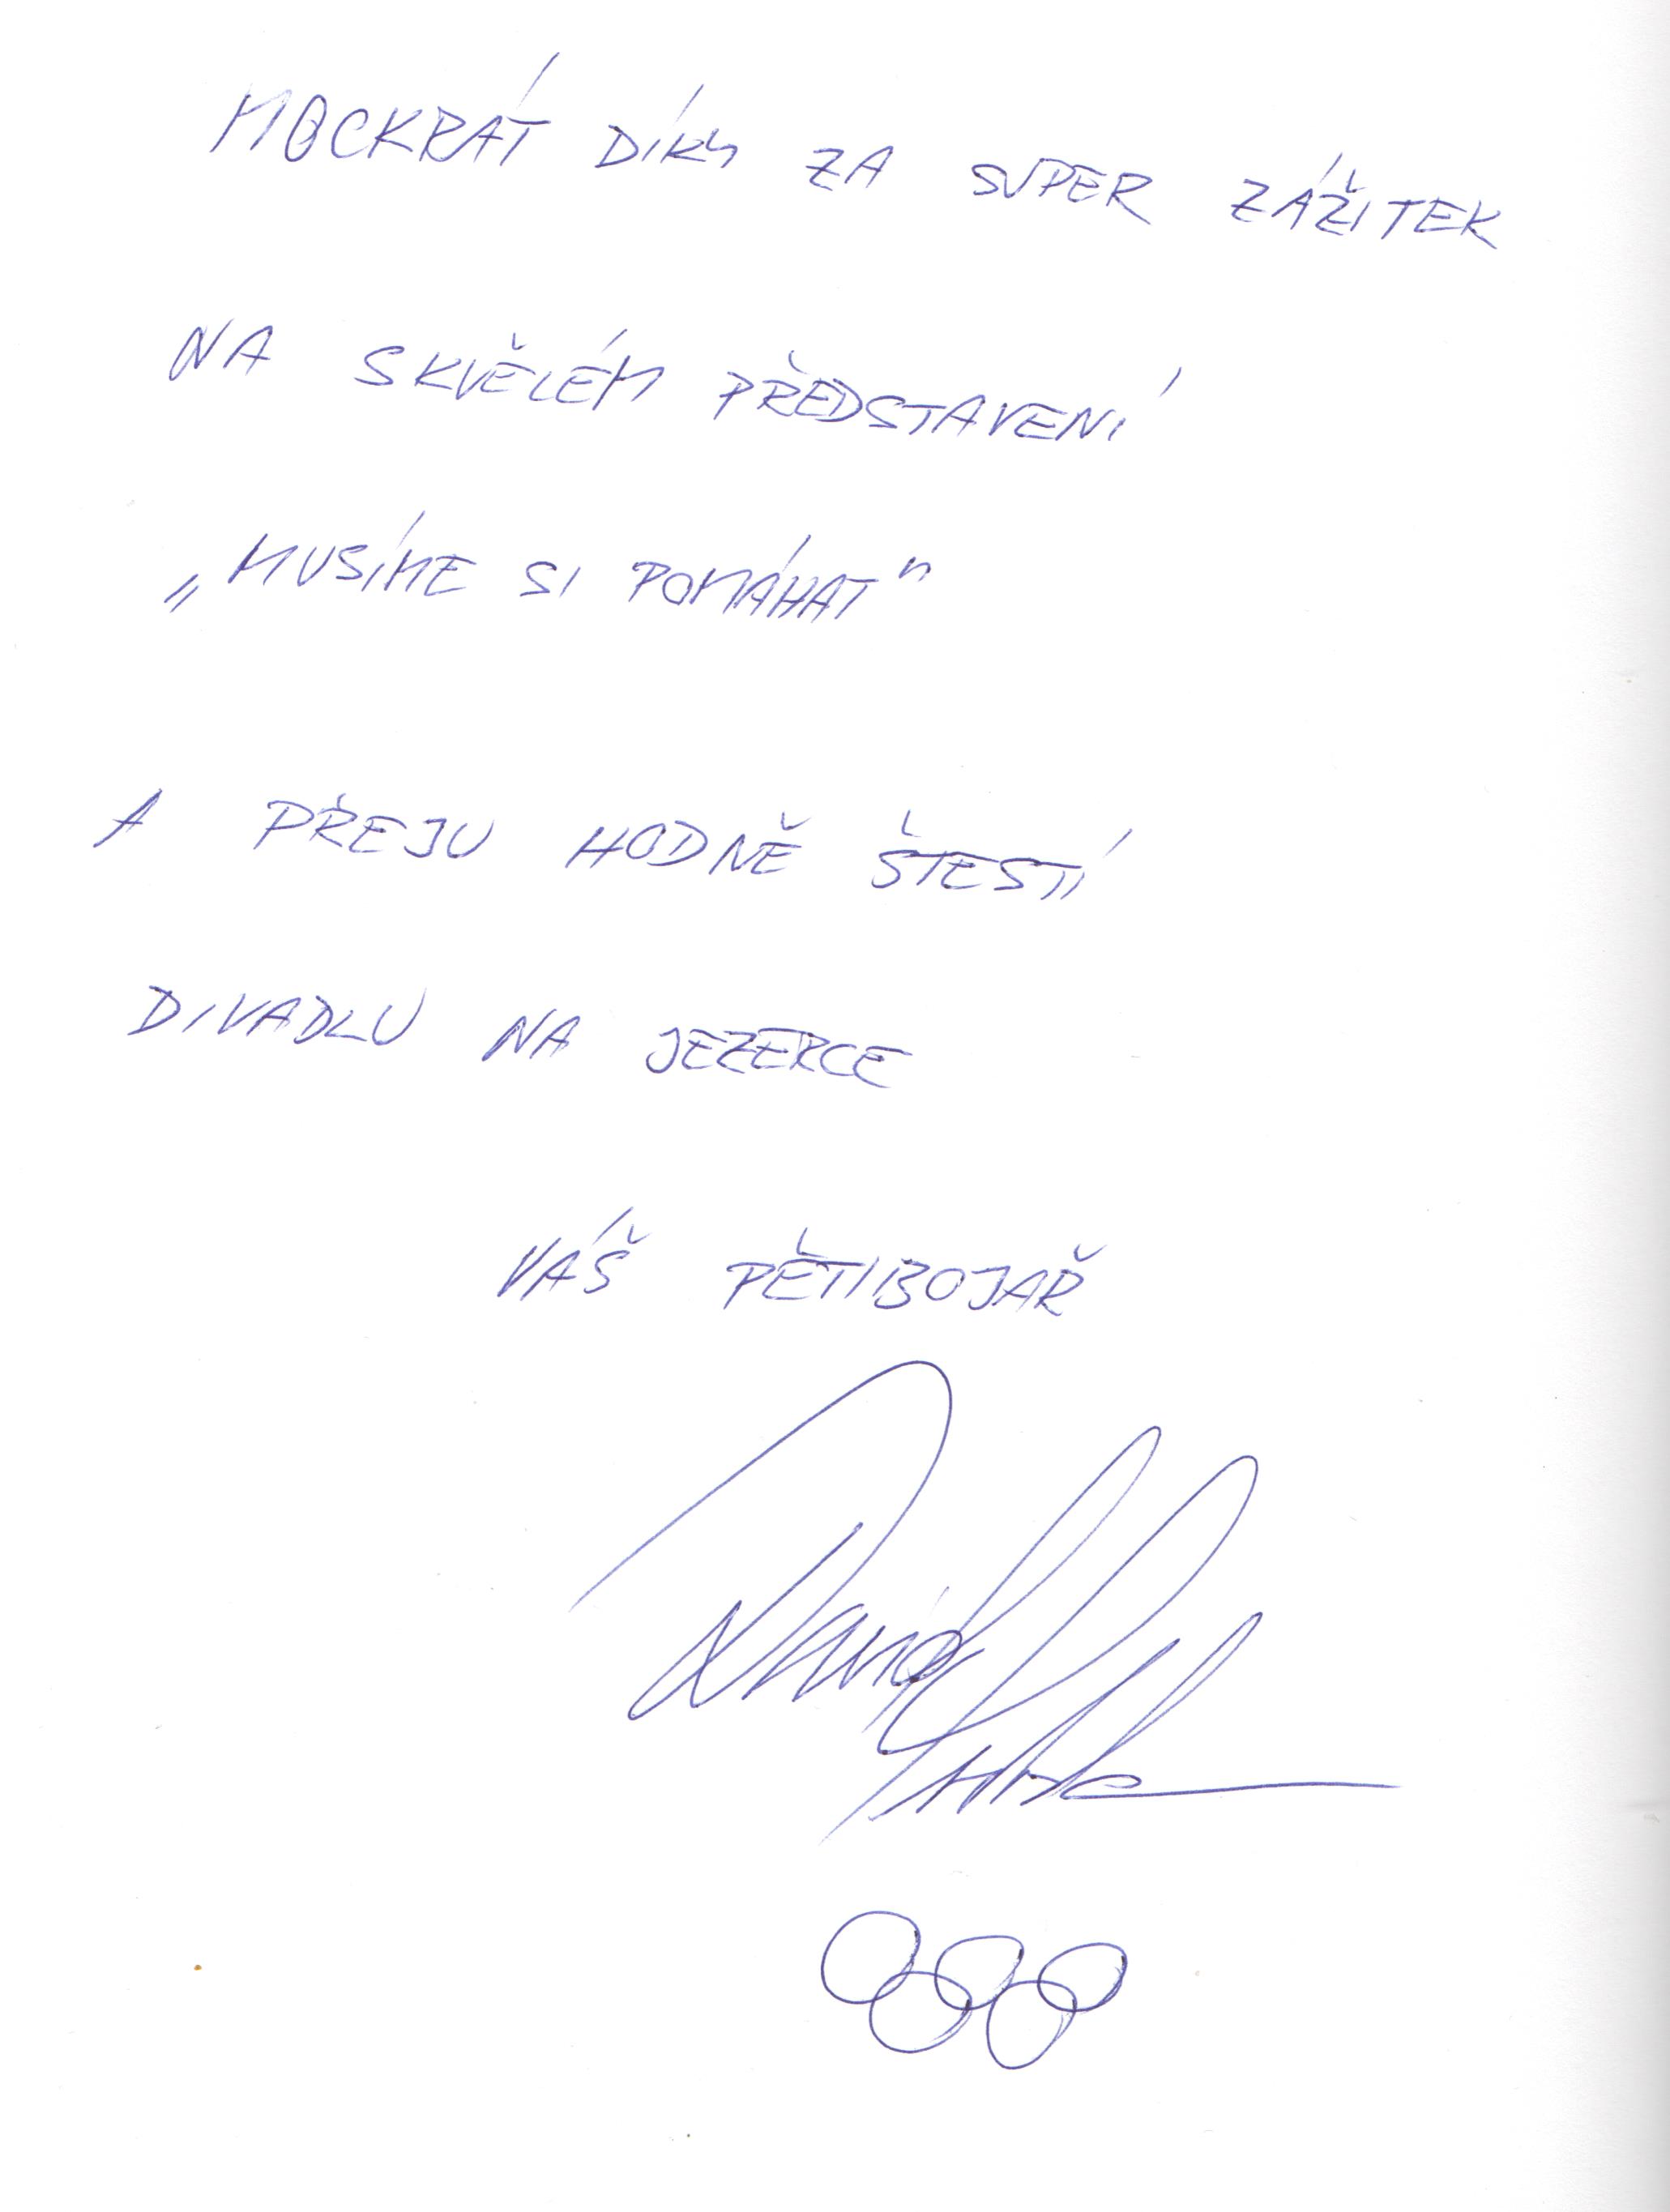 MOCKRÁT DÍKY ZA SUPER ZÁŽITEK
NA SKVĚLÉM PŘEDSTAVENÍ
„MUSÍME SI POMÁHAT“
A PŘEJU HODNĚ ŠTESTÍ
DIVADLU NA JEZERCE
VÁŠ PĚTIBOJAŘ
David